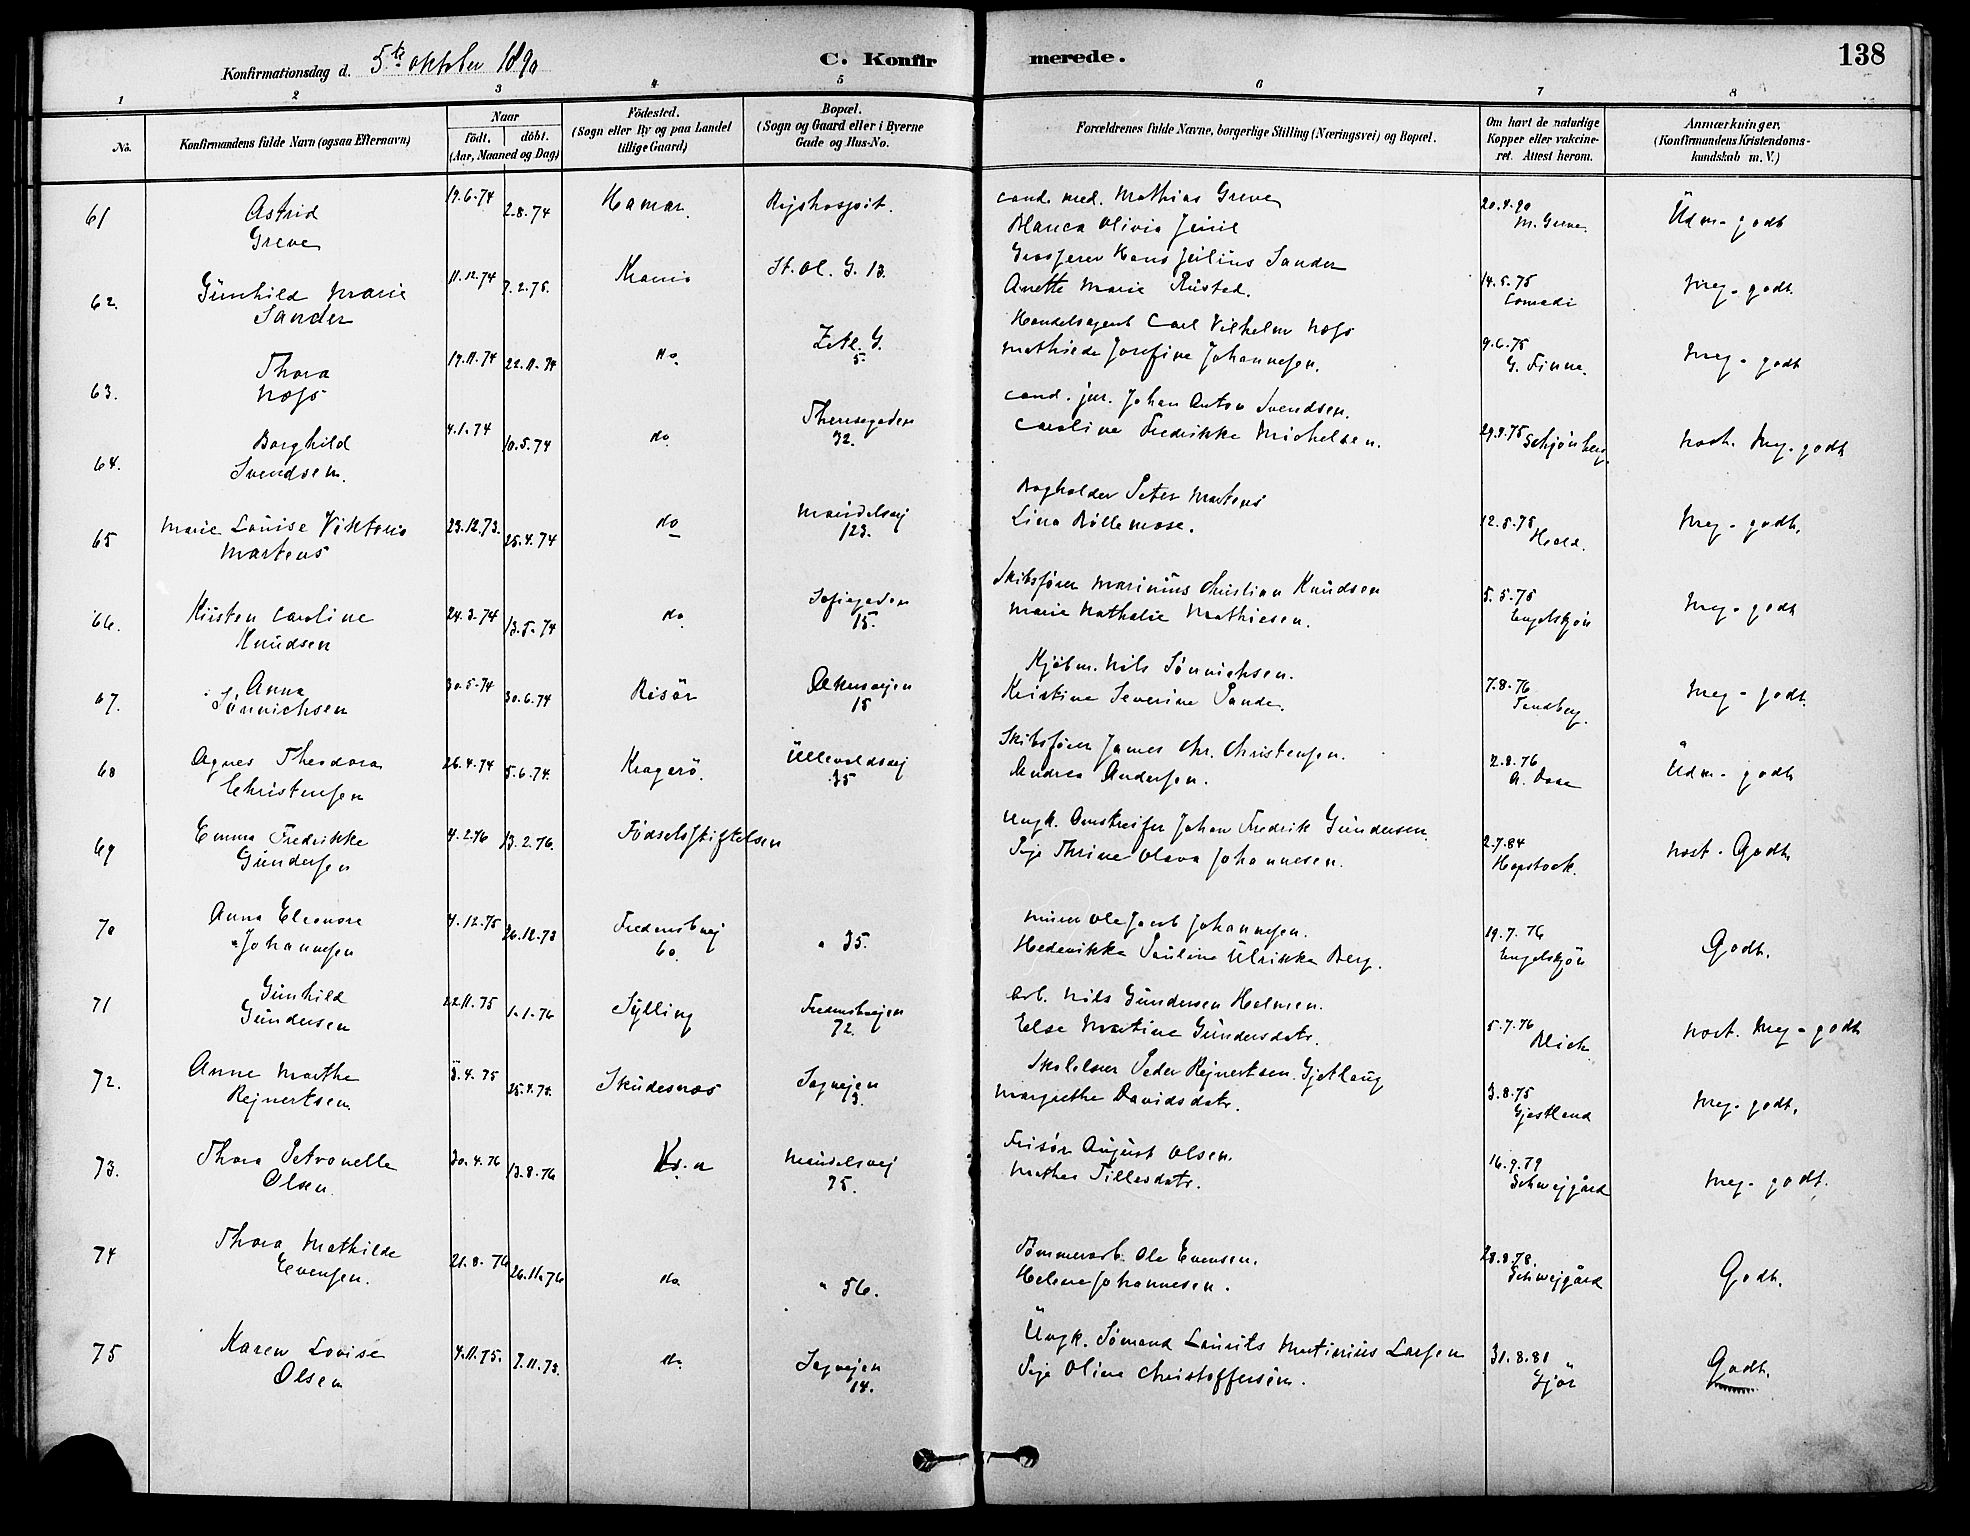 Konfirmationsdag d. 5te oktober 1890
C. Konfirmerede.
138
1 2 3 4 5 6 7 8
No. Konfirmandens fulde Navn (ogsaa Efternavn) Naar Födt. döbt. (Aar, Maaned og Dag) Födested. (Sogn eller By og paa Landet tillige Gaard) Bopæl. (Sogn og Gaard eller i Byerne Gade og Hus-No. Forældrenes fulde Navne, borgerlige Stilling (Næringsvei) og Bopæl. Om havt de naturlige Kopper eller vakcineret. Attest herom. Anmærkninger. (Konfirmandens Kristendomskundskab m. V.)
61 Astrid Greve 19.6.74 2.8.74 Hamar. Rigshospit. cand. med. Mathias Greve
Blanca Olivia Juul 20.4.90 M. Greve. Udm. godt
62. Gunhild Marie Sander 11.12.74 7.2.75. Krania St. Ol. G. 13. Grosserer Hans Julius Sander
Anette Marie Rustad. 14.5.75 Conradi Meg. godt.
63. Thora Næss 19.11.74 22.11.74 do. Zetl. G. 5. Handelsagent Carl Vilhelm Næss
Mathilde Josefine Johannesen. 9.6.75 G. Finne. Meg. godt
64. Borghild Svendsen. 4.1.74 10.5.74 do Theresegaden 32. cand. jur. Johan Anton Svendsen.
Caroline Fredrikke Michelsen. 29.9.75 Schjönberg. Næst. Meg. godt
65 Marie Louise Viktoria Martens 23.12.73. 25.4.74 do Maridalsvej 123. Bogholder Peter Martens
Lina Röllemose. 12.5.75 Heald. Meg. godt.
66. Kirsten Caroline Knudsen 24.3.74 13.5.74 do Sofiegaden 15. Skibsfører Marinius Christian Knudsen
Marie Nathalie Mathiesen. 5.5.75 Engelskjön Meg. godt
67. Anna Sönnichsen 30.5.74 30.6.74 Risör Akersvejen 15 Kjöbm. Nils Sönnichsen.
Kristine Severine Sande. 7.8.76 Sandberg. Meg. godt.
68 Agnes Theodora Christensen 26.4.74 5.6.74. Kragerö. Ullevoldsvej 35 Skibsfører James Chr. Christensen.
Andrea Andersen. 2.8.76 Udm. godt
69 Emma Fredrikke Gundersen 4.2.76 13.2.76. Födselsstiftelsen Ungk. Johan Fredrik Gundersen
Pige Thrine Olava Johannesen. 2.7.84 Hopstock. Næst. Godt.
70 Anna Eleonore Johannesen 4.12.75 26.12.75 Fredensbvej 60. " 35. Murer Ole Jacob Johannesen.
Hedevikka Pauline Ulrikke Berg. 19.7.76 Engelskjön Godt.
71 Gunhild Gundersen 22.11.75 1.1.76 Sylling Fredensbvejen 72. Arb. Nils Gundersen Holmen.
Else Martine Gundersdatr. 5.7.76 Blich Næst. Meg. godt
72. Anne Marthe Rejnertsen 3.4.75 25.4.75. Skudesnæs Sagvejen 3. Skolelærer Peder Rejnertsen Gjetlaug
Margrethe Davidsdatr. 3.8.75 Gjestland Meg. godt.
73. Thora Petronelle Olsen. 30.4.76 13.8.76 Kr.a Maridalsvej 75. Frisör August Olsen.
Mathea Tillesdatr. 16.9.79 Schwejgård Meg. godt.
74 Thora Mathilde Evensen. 21.8.76 26.11.76 do. " 56. Tömmerarb. Ole Evensen.
Helene Johannesen. 28.8.78. Schwejgård Godt.
75 Karen Lovise Olsen 4.11.75. 7.11.75. do. Sagvejen 14. Ungk. Sömand Laurits Martinius Larsen
Pige Oline Christoffersen. 31.8.81 Gjör Godt.